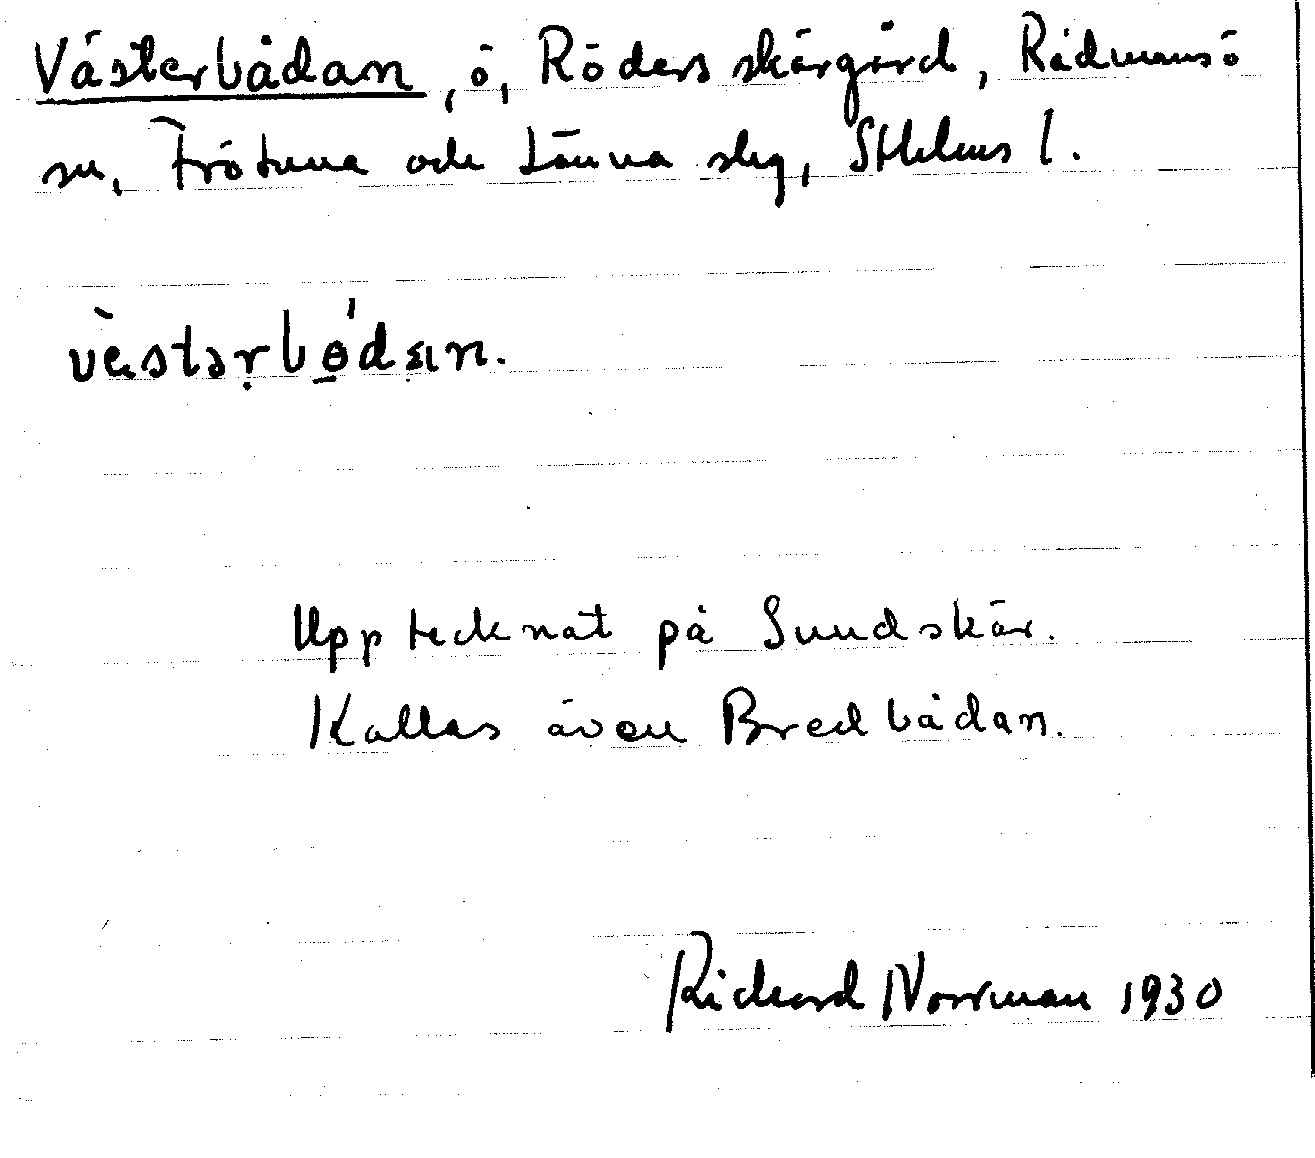 Västerbådan, ö, Röders skärgård, Rådmansö
sn, Frötuna och Länna slg, Sthlms l.
vὲstərbɵ́dan.
Upptecknat på Sundskär.
Kallas även Bredbådan.
Richard Norrman 1930